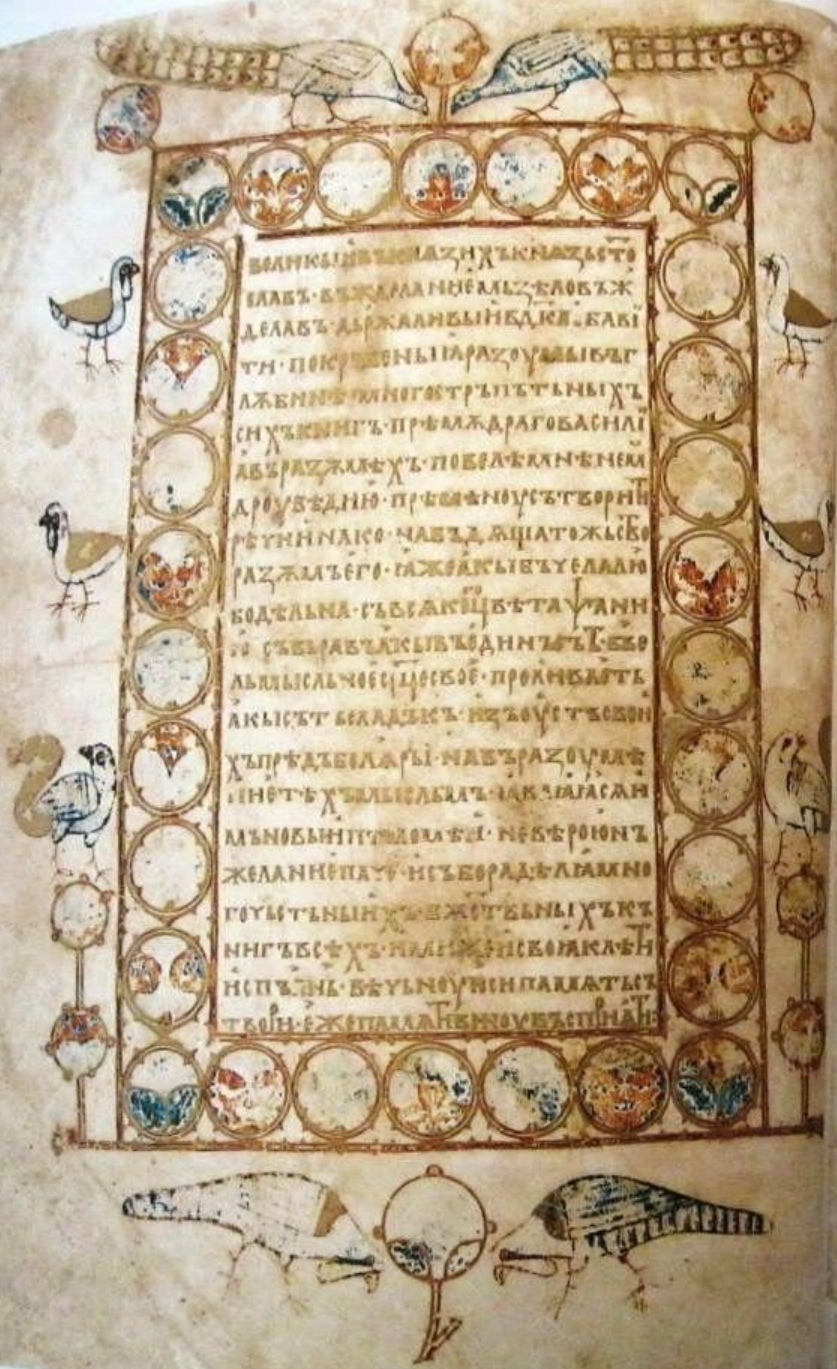 великыи въ кнѧзихъ кнѧзь ст҃о
славъ · въжделаниемь зѣло въж
делавъ · дьржаливыи влдка · обави
ти · покръвеныѩ разоумы въ г
лѫбинѣ многостръпътьныхъ
сихъ книгъ · прѣмѫдраго василі
ꙗ въ разѫмѣхъ · повелѣ мнѣ нем
дроувѣдию · прѣмѣноу сътворити
рѣчи инако · набъдѧща тожьство
разѫмъ его · ꙗже акы бъчела лю
бодѣльна · съ всѧкого цвѣта ѱани
ю събьравъ акы въ единъ сътъ · въ ве
льмысльное срдце свое · проливаѥть
акы сътъ сладъкъ · изъ оустъ свои
хъ прѣдъ болѧры · на въразоумѣ
ниѥ тѣхъ мыслемъ · ꙗвлꙗꙗсѧ и
мъ новыи птоломѣи · не вѣрою нъ
желаниемь паче · и събора дѣлꙗ мно
гочьстьныихъ · бжствьныхъ к
нигъ всѣхъ · имиже и своꙗ клѣти
испълнь · вѣчьноую си память съ
твори · еже памѧти виноу въсприѧти ·